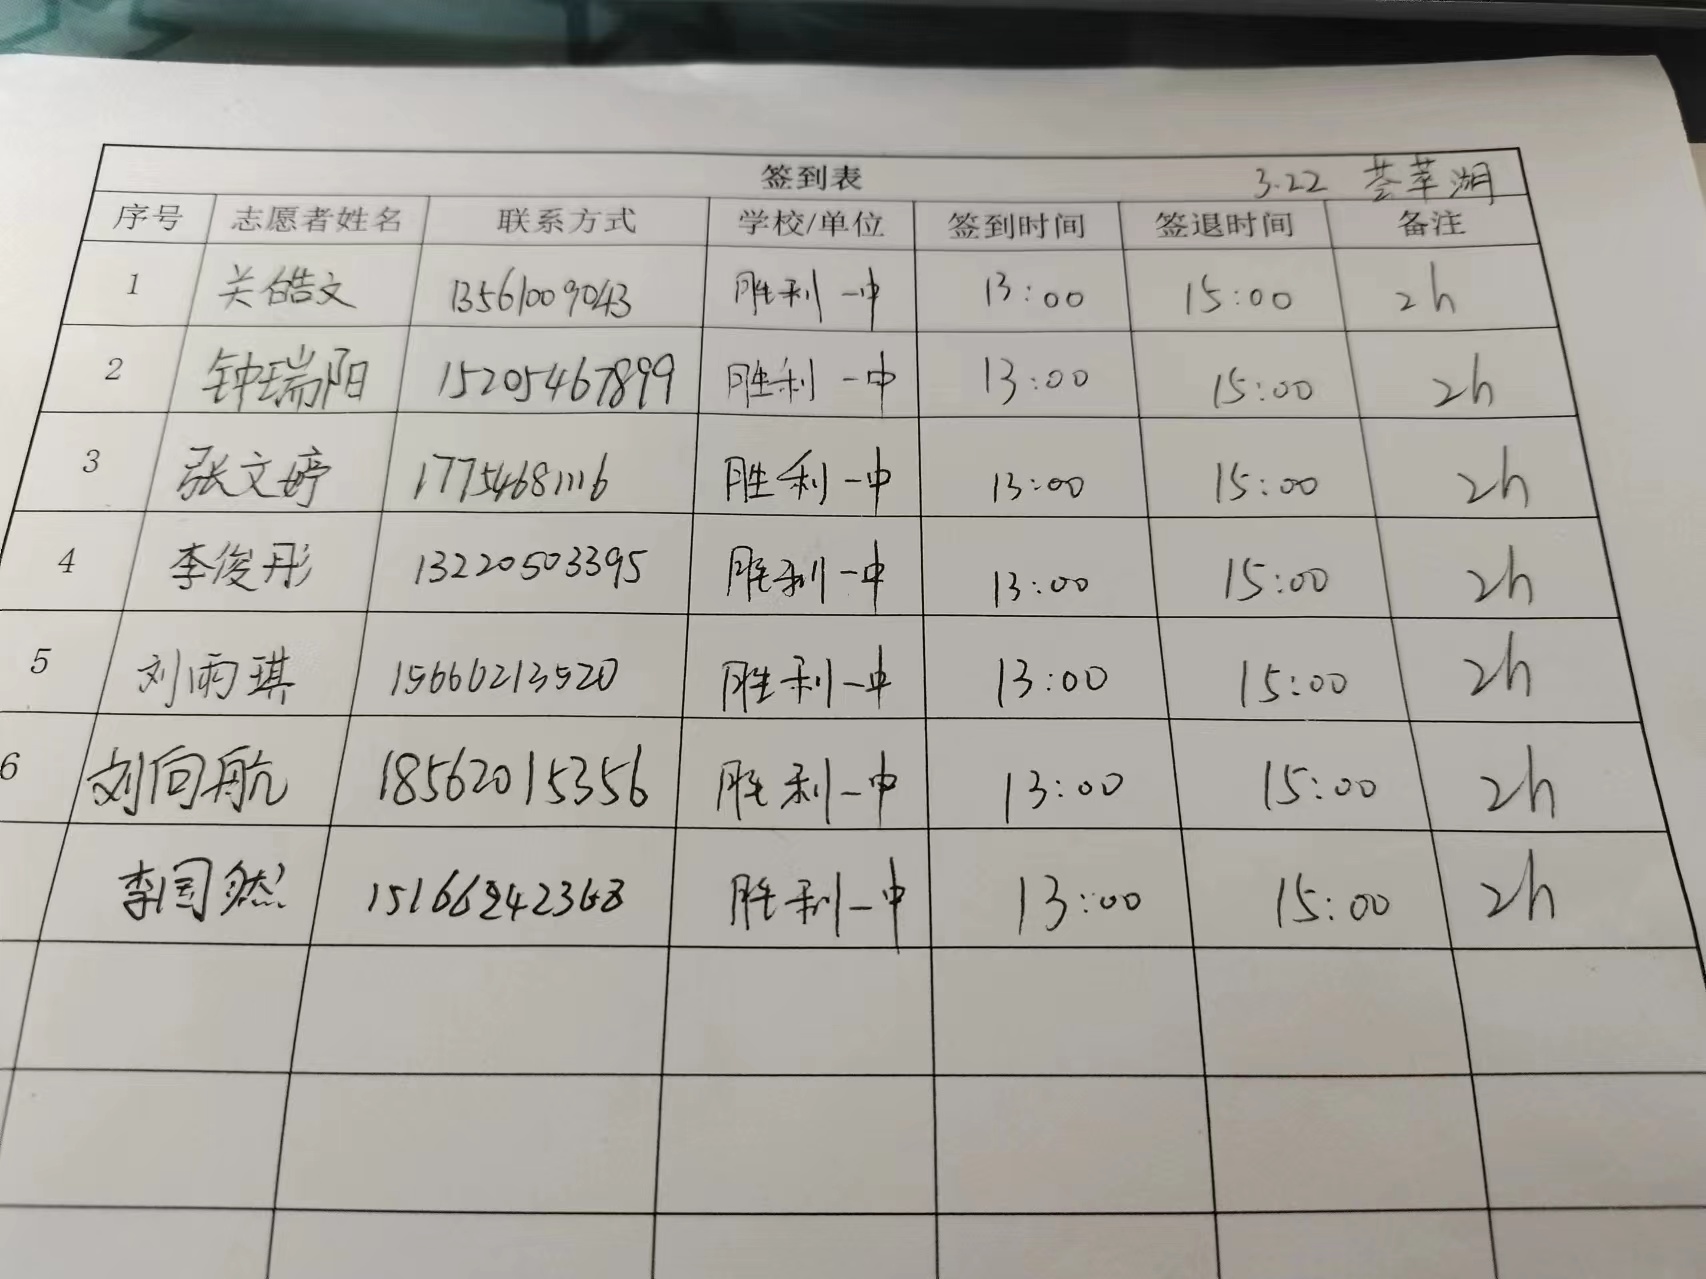 签到表 3.22 荟萃湖
序号 志愿者姓名 联系方式 学校/单位 签到时间 签退时间 备注
1 关皓文 13561009043 胜利一中 13:00 15:00 2h
2 钟瑞阳 15205467899 胜利一中 13:00 15:00 2h
3 张文婷 17754681116 胜利一中 13:00 15:00 2h
4 李俊彤 13220503395 胜利一中 13:00 15:00 2h
5 刘雨琪 15666213520 胜利一中 13:00 15:00 2h
6 刘向航 18562015356 胜利一中 13:00 15:00 2h
李国然 胜利一中 13:00 15:00 2h